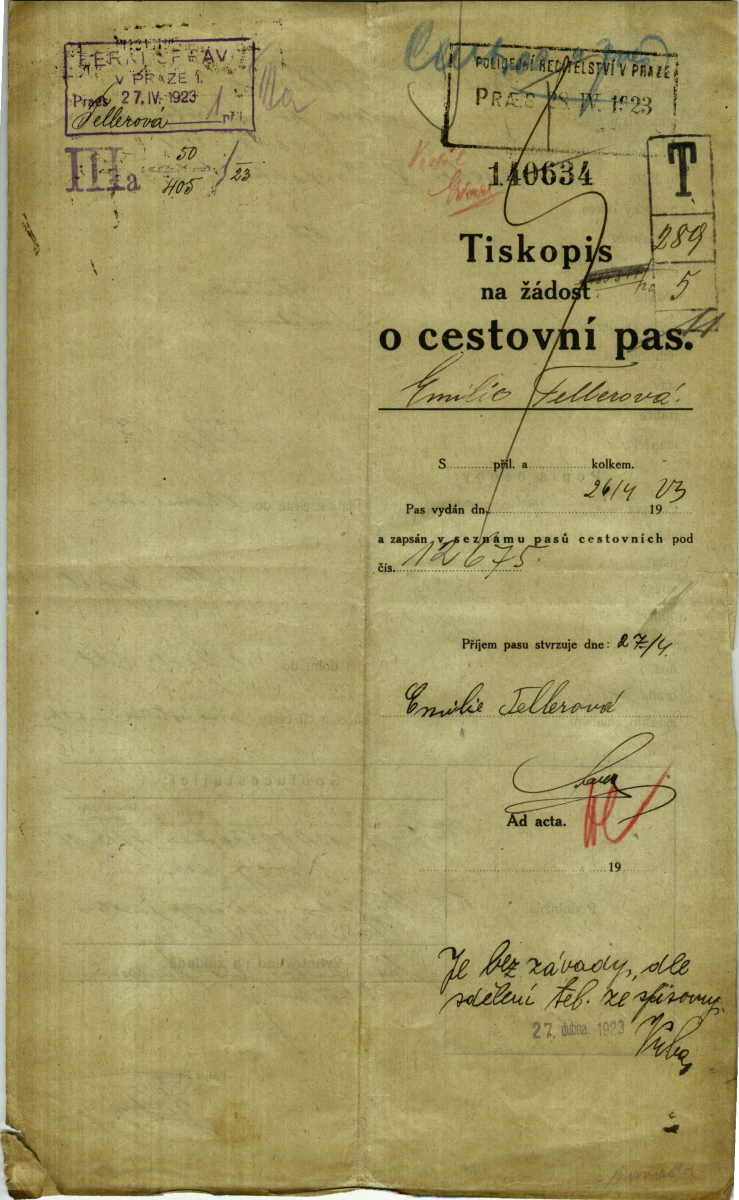 BERNÍ SPRÁV
V PRAZE I.
Praes 27.IV.1923
Tellerová 1 příl.
IIIa
IIIa 50/405 /23
POLICEJNÍ ŘEDITELSTVÍ V PRAZE
PRÆS IV. 1923
140634
T
289
5
Tiskopis
na žádost
o cestovní pas.
Emilie Tellerová.
S příl. a kolkem.
Pas vydán dn. 26/4 19 23
a zapsán v seznámu pasů cestovních pod
čís. 12675.
Příjem pasu stvrzuje dne: 27/4.
Emilie Tellerová
Ad acta.
19
Je bez závady, dle
sdělení tel. ze spisovny.
27. dubna 1923